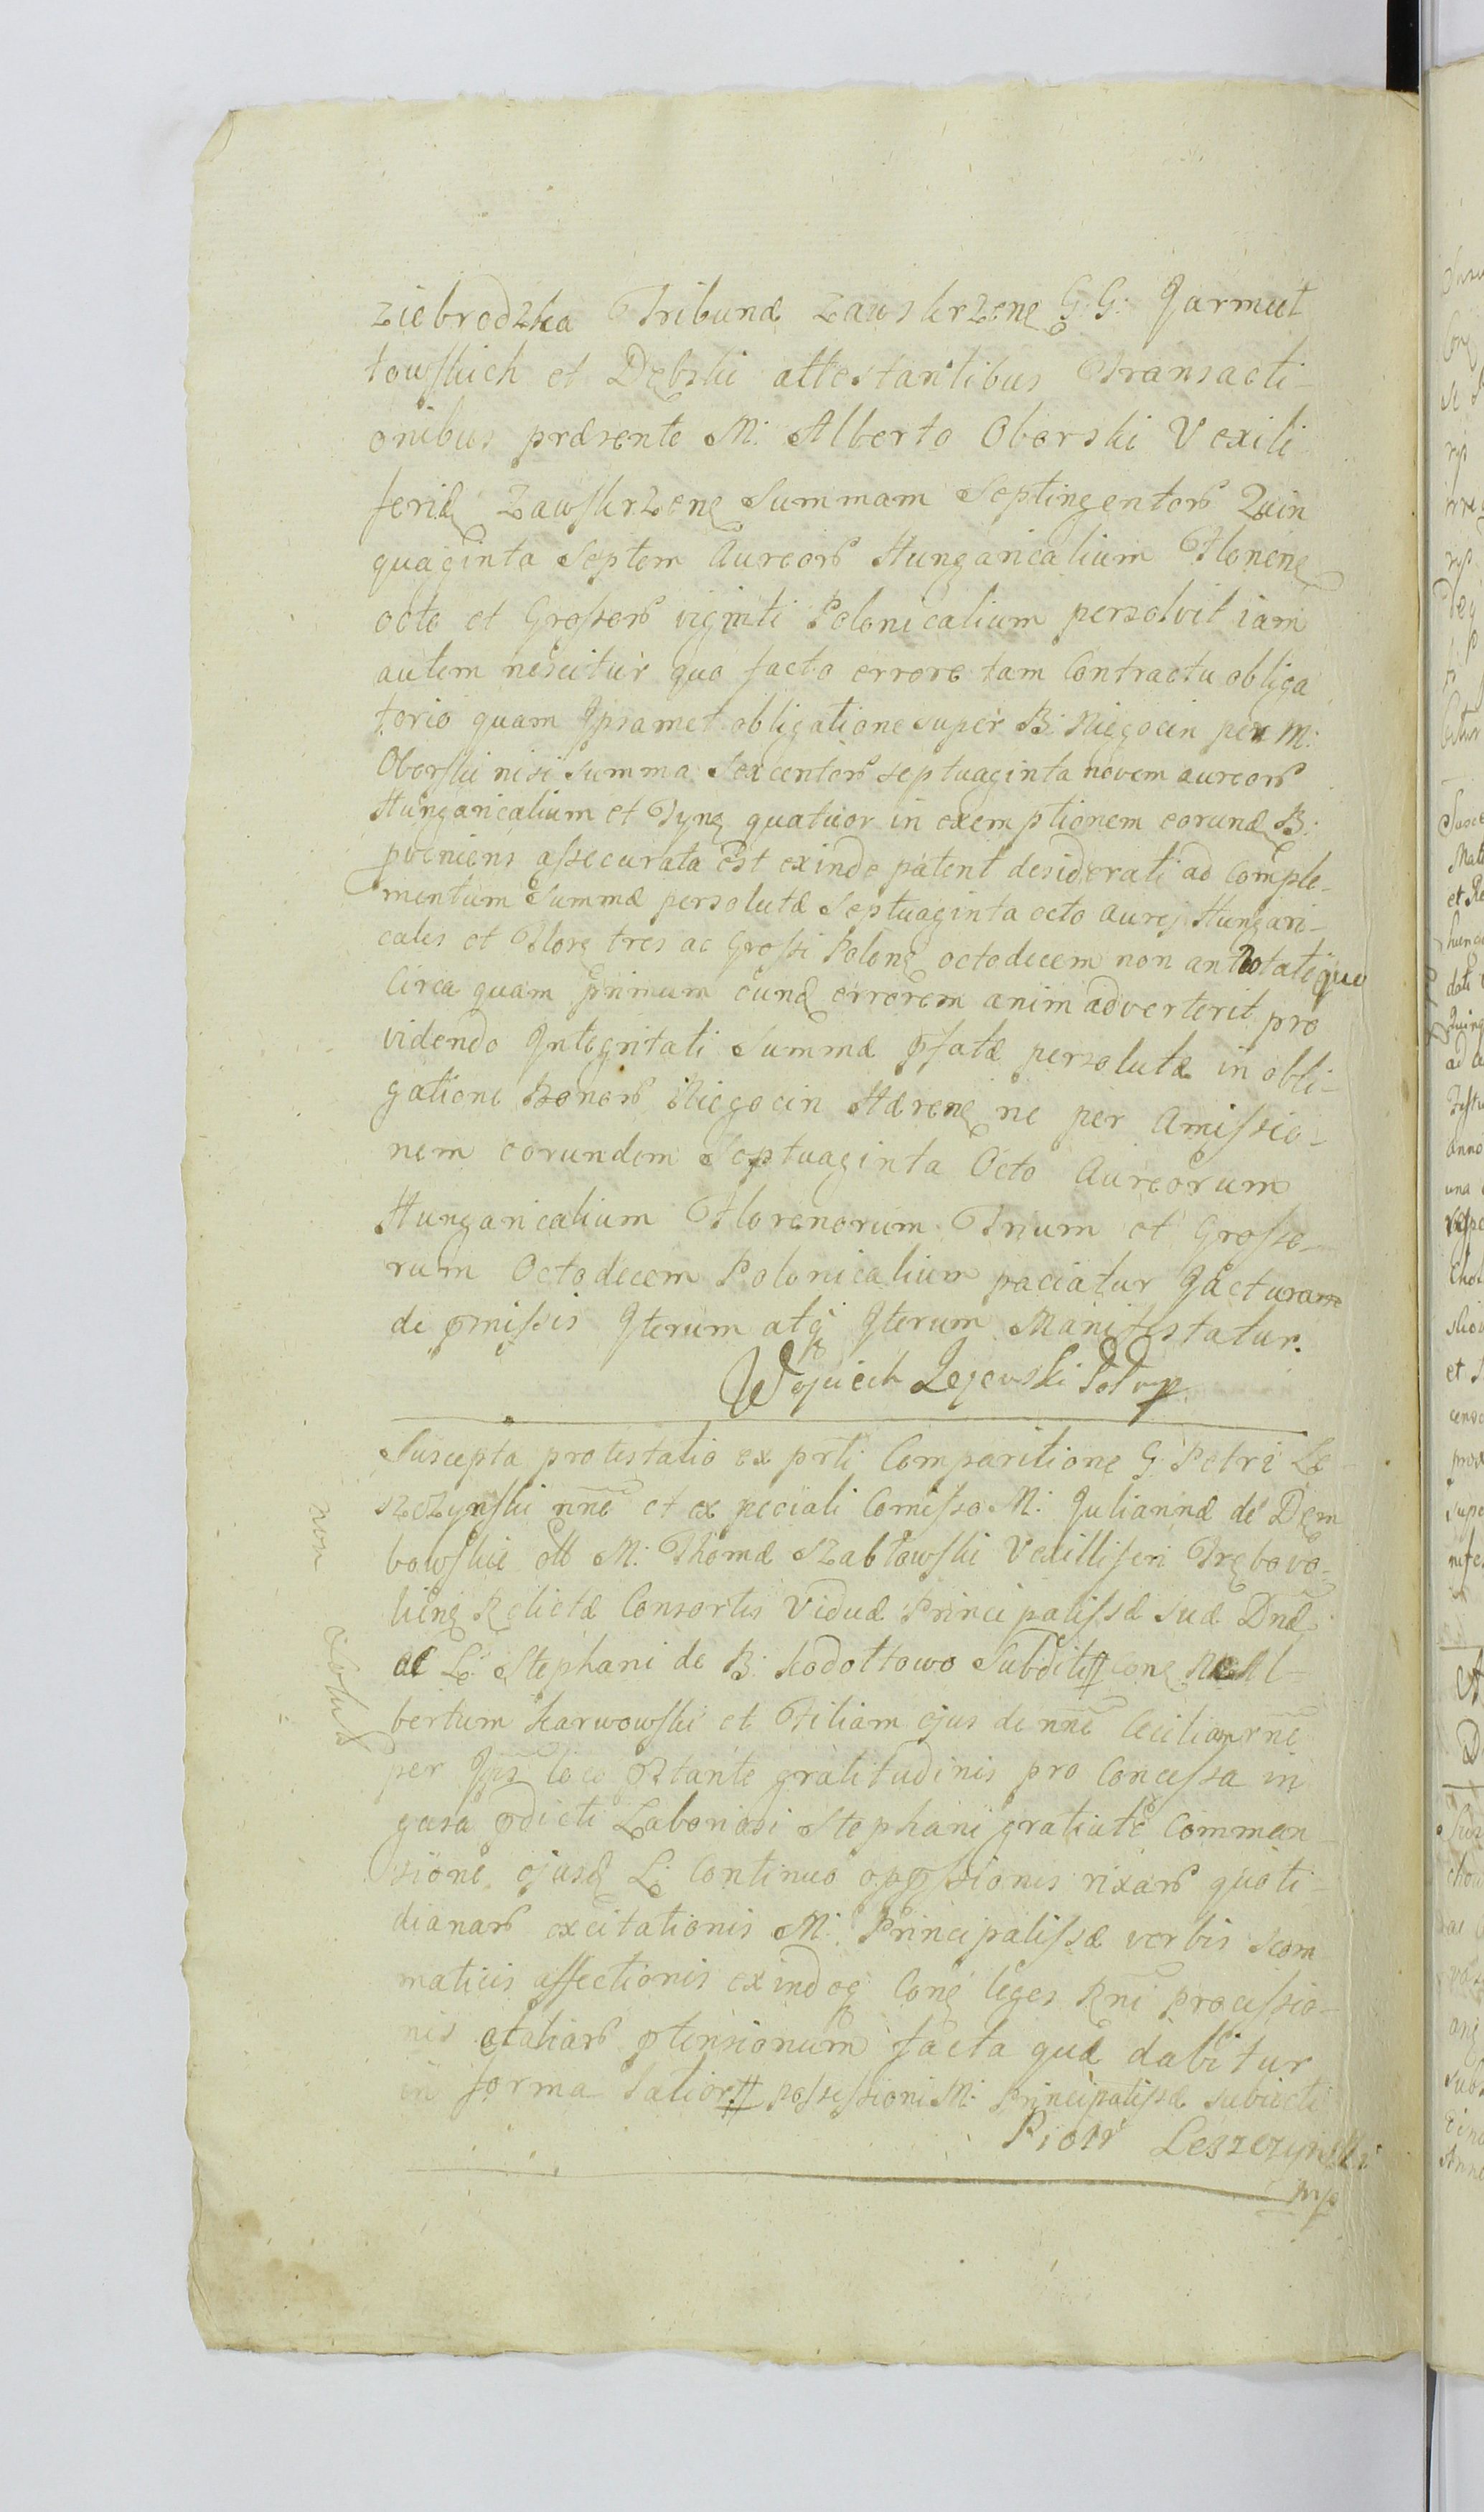 ziebrodzka Tribunæ Zawskrzene G.G. Jarmut
towskich et Debski attestantibus Transacti-
onibus præsente M: Alberto Oborski Vexili
feri Zawskrzene Summam Septingentor Quin
quaginta Septem Aureor Hungaricalium Florene
octo et Grossor viginti Polonicalium persolvit iam
autem nescitur quo facto errore tam Contractu obliga
torio quam Ipsamet obligatione super B: Niegocin per M:
Oborski nisi summa Sexcentor septuaginta novem aureor
Hungaricalium et Tyne quatuor in exemptionem eorund B:
pveniens assecurata est exinde patent desiderati ad Comple-
mentum Summæ persolutæ Septuaginta octo aurei Hungari-
cales et Flore tres ac Grossi Polone octodecem non annotati quo
Circa quam primum eund errorem animadverterit pro
videndo Integritati Summæ pfatæ persolutæ in obli-
gatione Bonor Niegocin Hærene ne per Amissio-
nem eorundem Septuaginta Octo Aureorum
Hungaricalium Florenorum Trium et Grosso-
rum Octodecem Polonicalium paciatur Jacturam
de pmissis Iterum atq Iterum Manifestatur.
Wojciech Lejewski
Suscepta protestatio ex prti Comparitione G: Petri Le-
szczynski nne et ex speciali Comisso M: Juliannæ de Dem
bowskie olt M: Thomæ Szabłowski Vexilliferi Trębowo-
liene Relictæ Consortis Viduæ Principalissæ suæ Dnæ
ac L: Stephani de B: Kodołtowo Subditi cone Al-
bertum Karwowski et Filiam ejus de nne Ceciliam rne
per Ips loco pstante gratitudinis pro Concessa in
pdicti Laboriosi Stephani gratiute Comman-
sione ejusd L: Continuo oppssionis rixar quoti-
dianar excitationis M: Principalissæ verbis scom
maticis affectionis exindeq Cone leges Rni processio-
nis aliar ptensionum facta quæ dabitur
in forma latiori possessioni M: Principalissæ subiecti
Piotr Leszczynski
mp
non